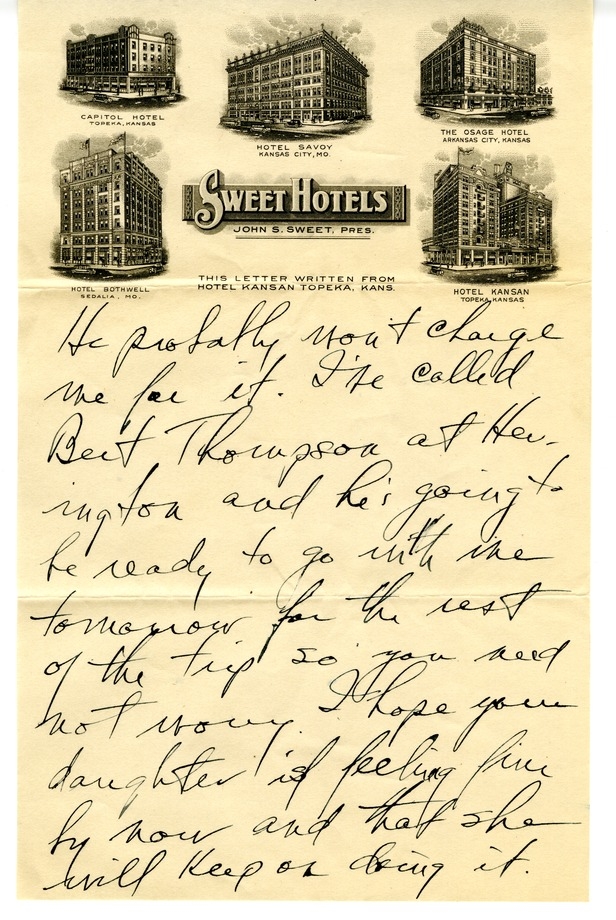 CAPITOL HOTEL
TOPEKA, KANSAS
HOTEL SAVOY
KANSAS CITY, MO.
THE OSAGE HOTEL
ARKANSAS CITY, KANSAS
SWEET HOTELS
JOHN S. SWEET, PRES.
HOTEL BOTHWELL
SEDALIA, MO.
THIS LETTER WRITTEN FROM
HOTEL KANSAN TOPEKA, KANS.
HOTEL KANSAN
TOPEKA, KANSAS
He probably won't charge
me for it. I've called
Bert Thompson at Her-
ington and he's going to
be ready to go with me
tomorrow for the rest
of the trip so you need
not worry. I hope your
daughter is feeling fine
by now and that she
will keep on doing it.